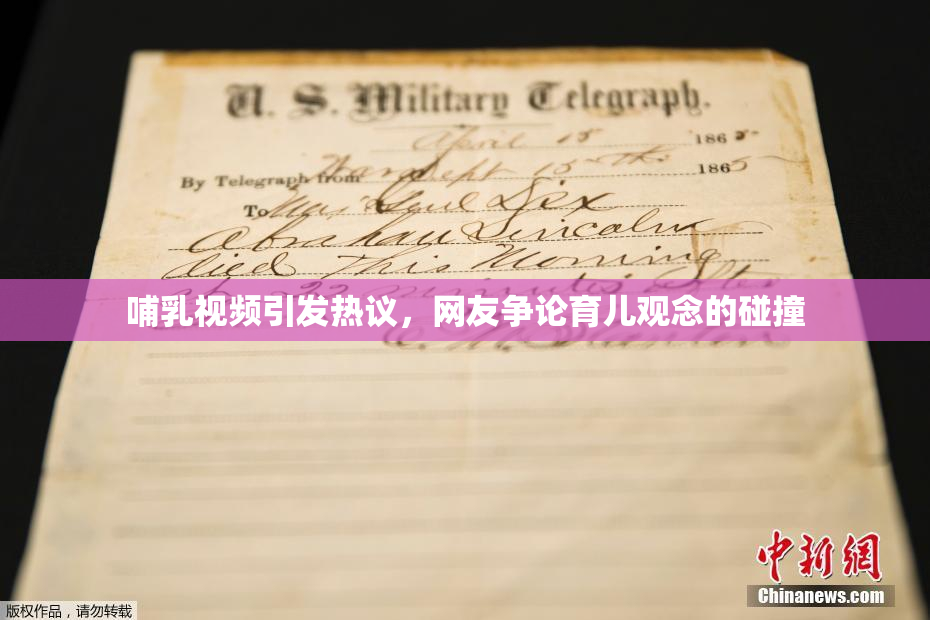 U. S. Military Telegraph.
April 15 1865
By Telegraph from War Dept 15th 1865
To Maj Genl Dix
Abraham Lincoln
died This Morning
at 22 minutes after
哺乳视频引发热议，网友争论育儿观念的碰撞
E. M. Stanton
中新网
Chinanews.com
版权作品，请勿转载